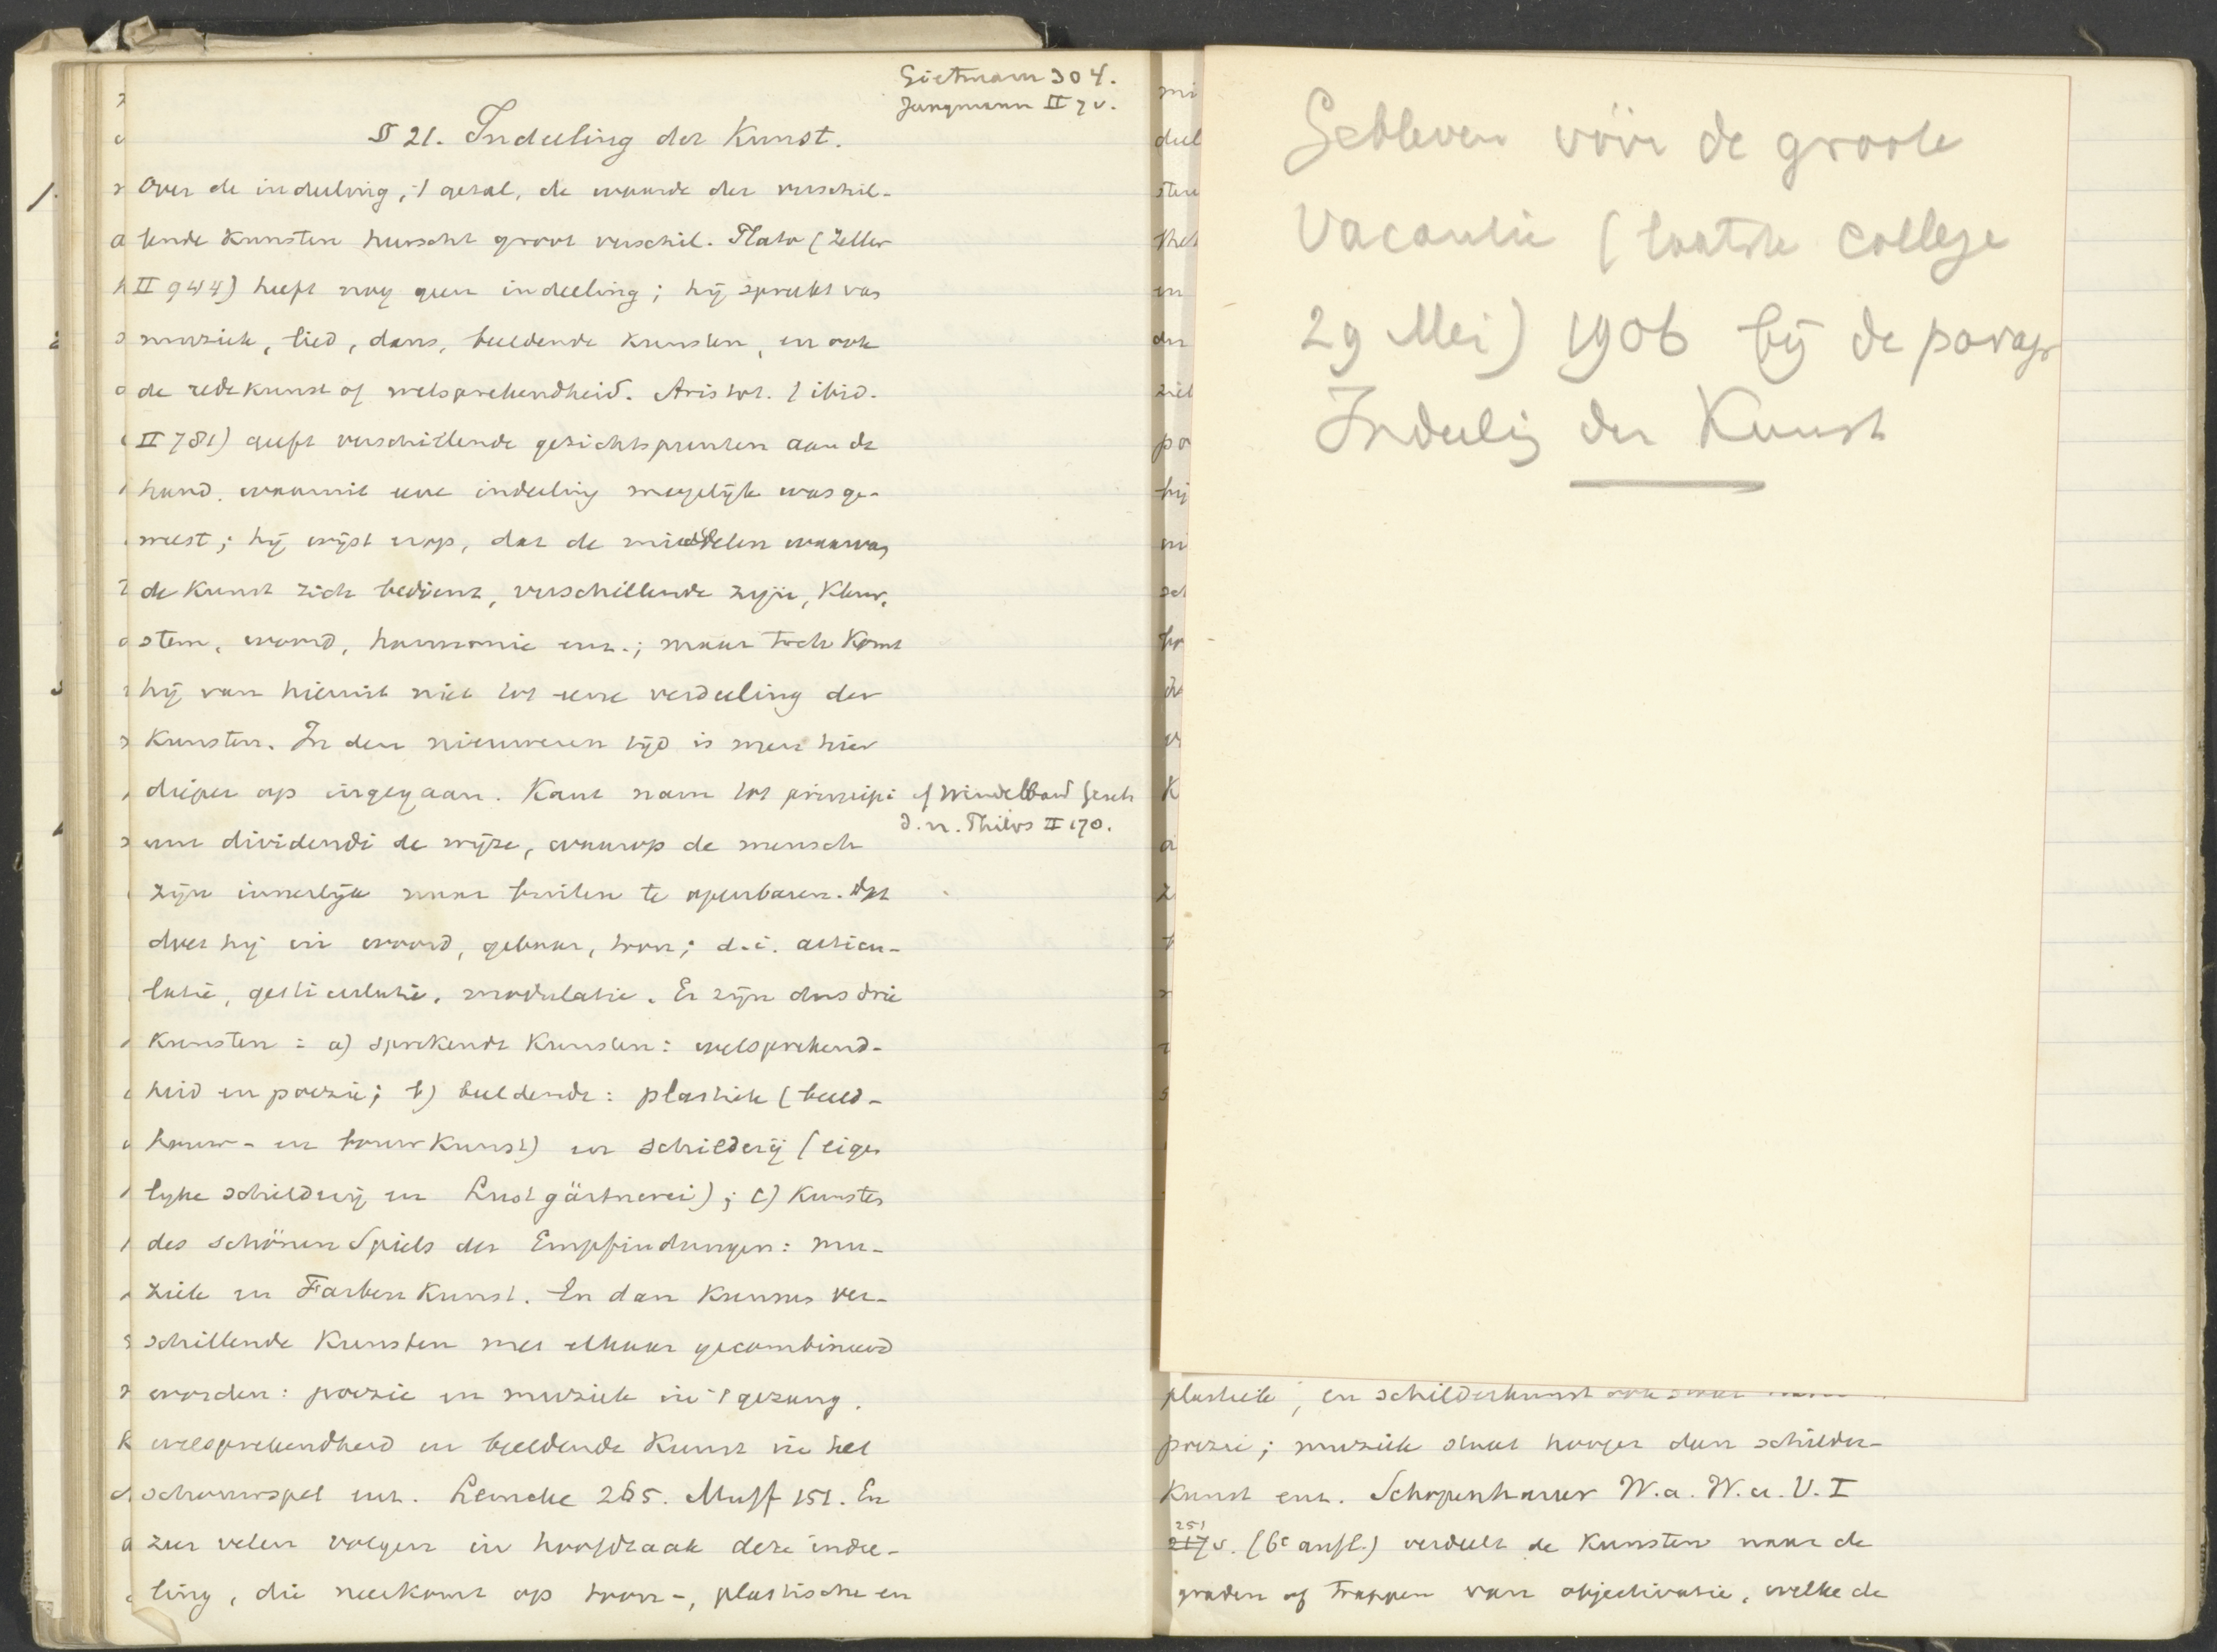 Gietmann 304.
Jungmann II 7 v.
§ 21. Indeeling der Kunst.
Over de indeeling, 't getal, de waarde der verschil-
lende Kunsten heerscht groot verschil. Plato (Zeller
II 944) heeft nog geen indeeling; hij spreekt van
muziek, lied, dans, beeldende Kunsten, en ook
de redekunst of welsprekendheid. Aristot. (ibid.
II 781) geeft verschillende gezichtspunten aan de
hand, waarmit eene indeeling mogelijk was ge-
weest; hij wijst erop, dat de middelen waarvan
de Kunst zich bedient, verschillende zijn, Kleur,
stem, woord, harmonie enz.; maar toch Komt
hij van hieruit niet tot eene verdeeling der
Kunsten. In den nieuweren tijd is men hier
dieper op ingegaan. Kant nam tot principi-
cf Windelband Gesch
d. n. Philos II 170.
um dividendi de wijze, waarop de mensch
zijn innerlijk naar buiten te openbaren. Dat
doet hij in woord, gebaar, toon; d.i. articu-
latie, gesticulatie, modulatie. Er zijn dus drie
Kunsten: a) sprekende Kunsten: welsprekend-
heid en poezie; b) beeldende: plastiek (beeld-
houw- en bouwkunst) en schilderij (eigen
lijke schilderij en Lustgärtnerei); c) Kunsten
des schönen Spiels der Empfindungen: mu-
ziek en Farbenkunst. En dan Kunnen ver-
schillende Kunsten met elkaar gecombineerd
worden: poezie en muziek in 't gezang,
welsprekendheid en beeldende Kunst in het
schouwspel enz. Lemcke 265. Muff 151. En
zeer velen volgen in hoofdzaak deze indee-
ling, die neerkomt op toon-, plastische en
Gebleven vóór de groote
Vacantie (laatste college
29 Mei) 1906 bij de paragr
Indeelig der Kunst
plastiek, en schilderkunst
poezie; muziek staat hooger dan schilder-
Kunst enz. Schopenhauer W. a. W. u. V. I
251
217 v. (6e aufl.) verdeelt de Kunsten naar de
graden of trappen van objectivatie, welke de